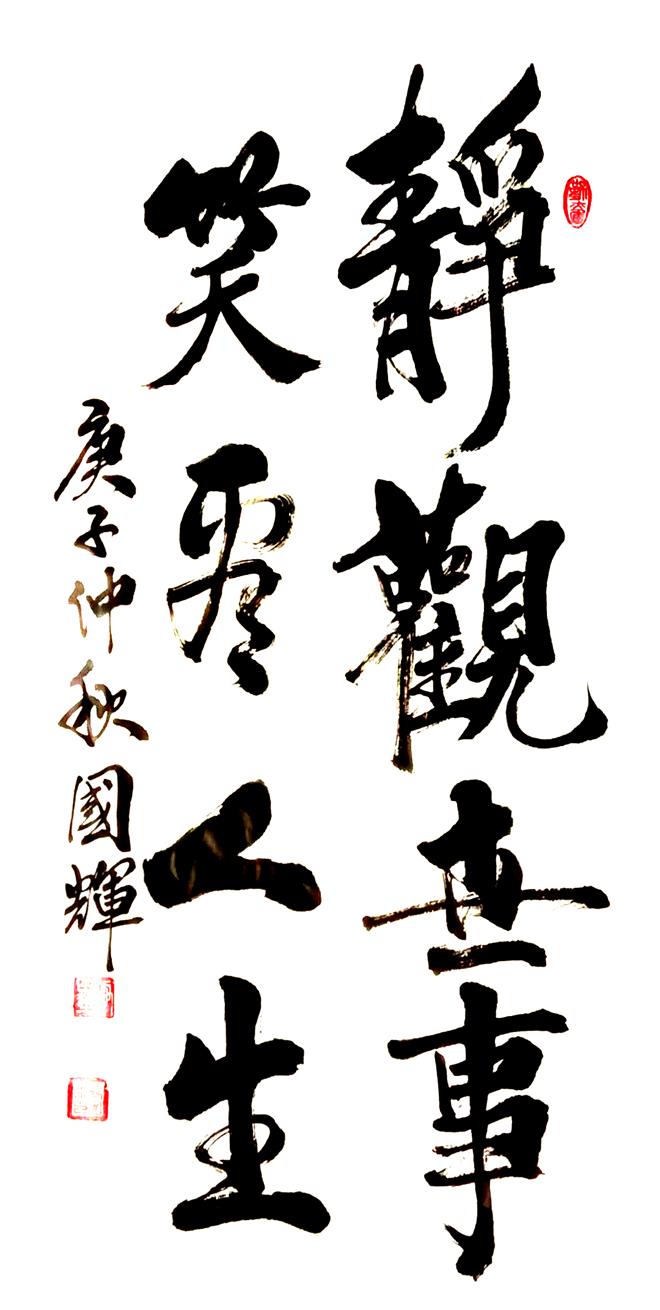 靜觀世事
笑人生
庚子仲秋國輝